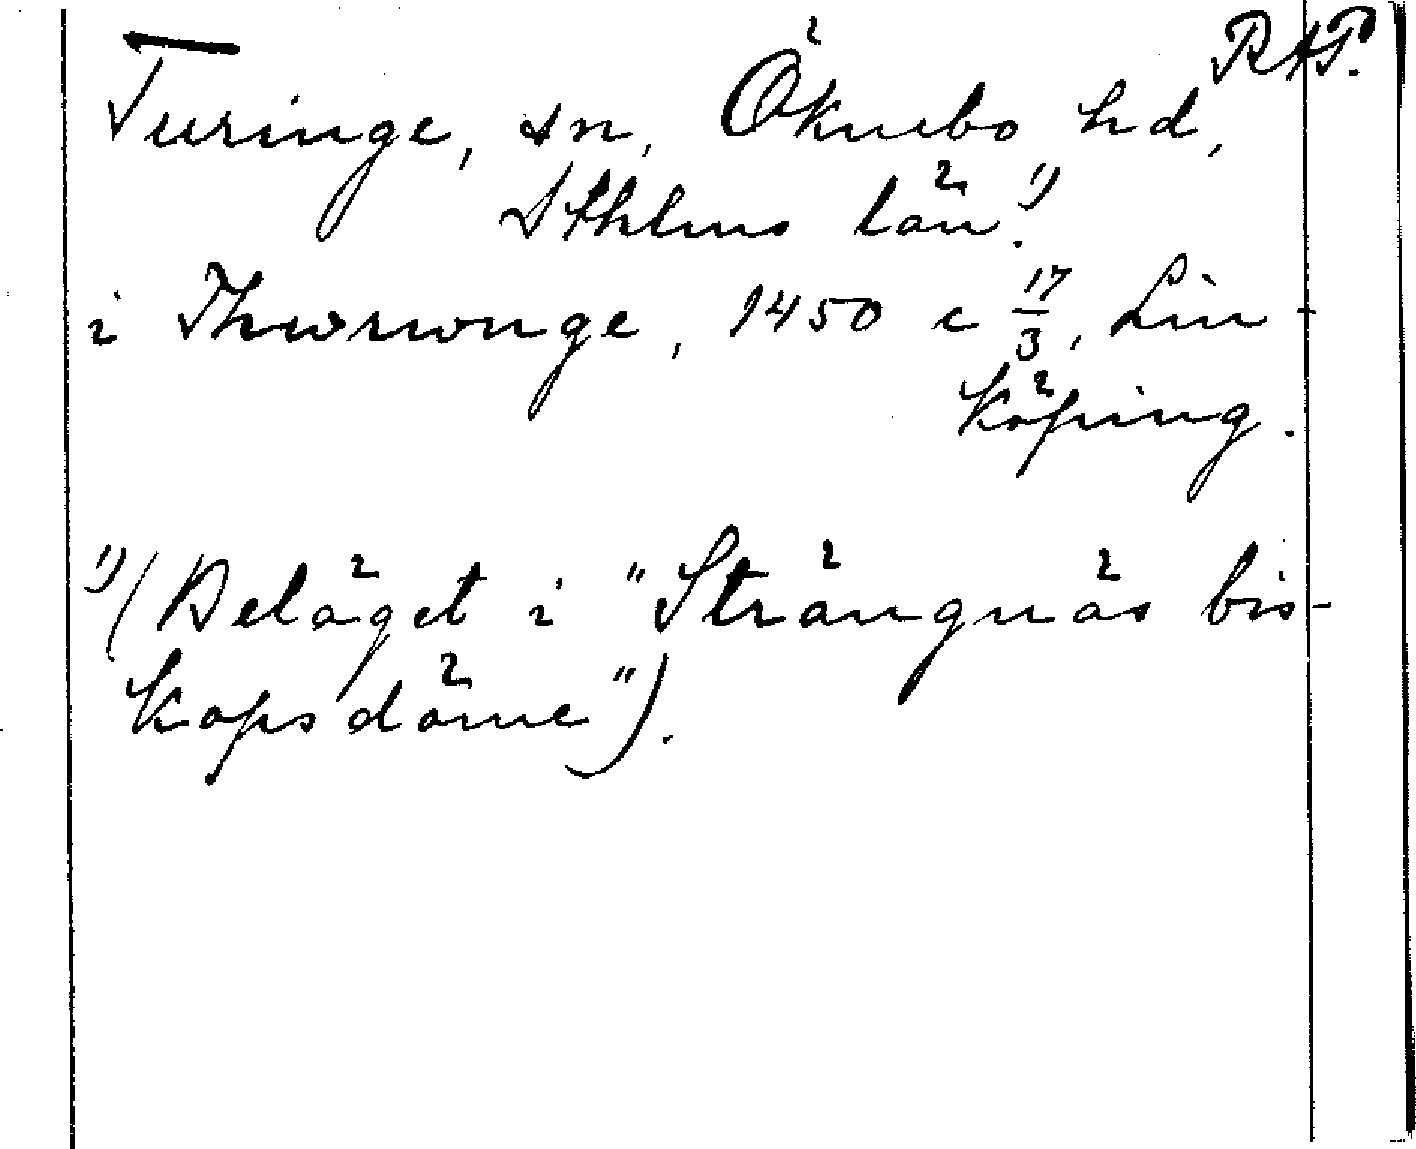 RAP.
Turinge, sn, Öknebo hd,
Sthlms län.¹⁾
i Thwrwnge, 1450 c 17/3, Lin-
köping.
¹⁾ (Beläget i "Strängnäs bis-
kopsdöme").